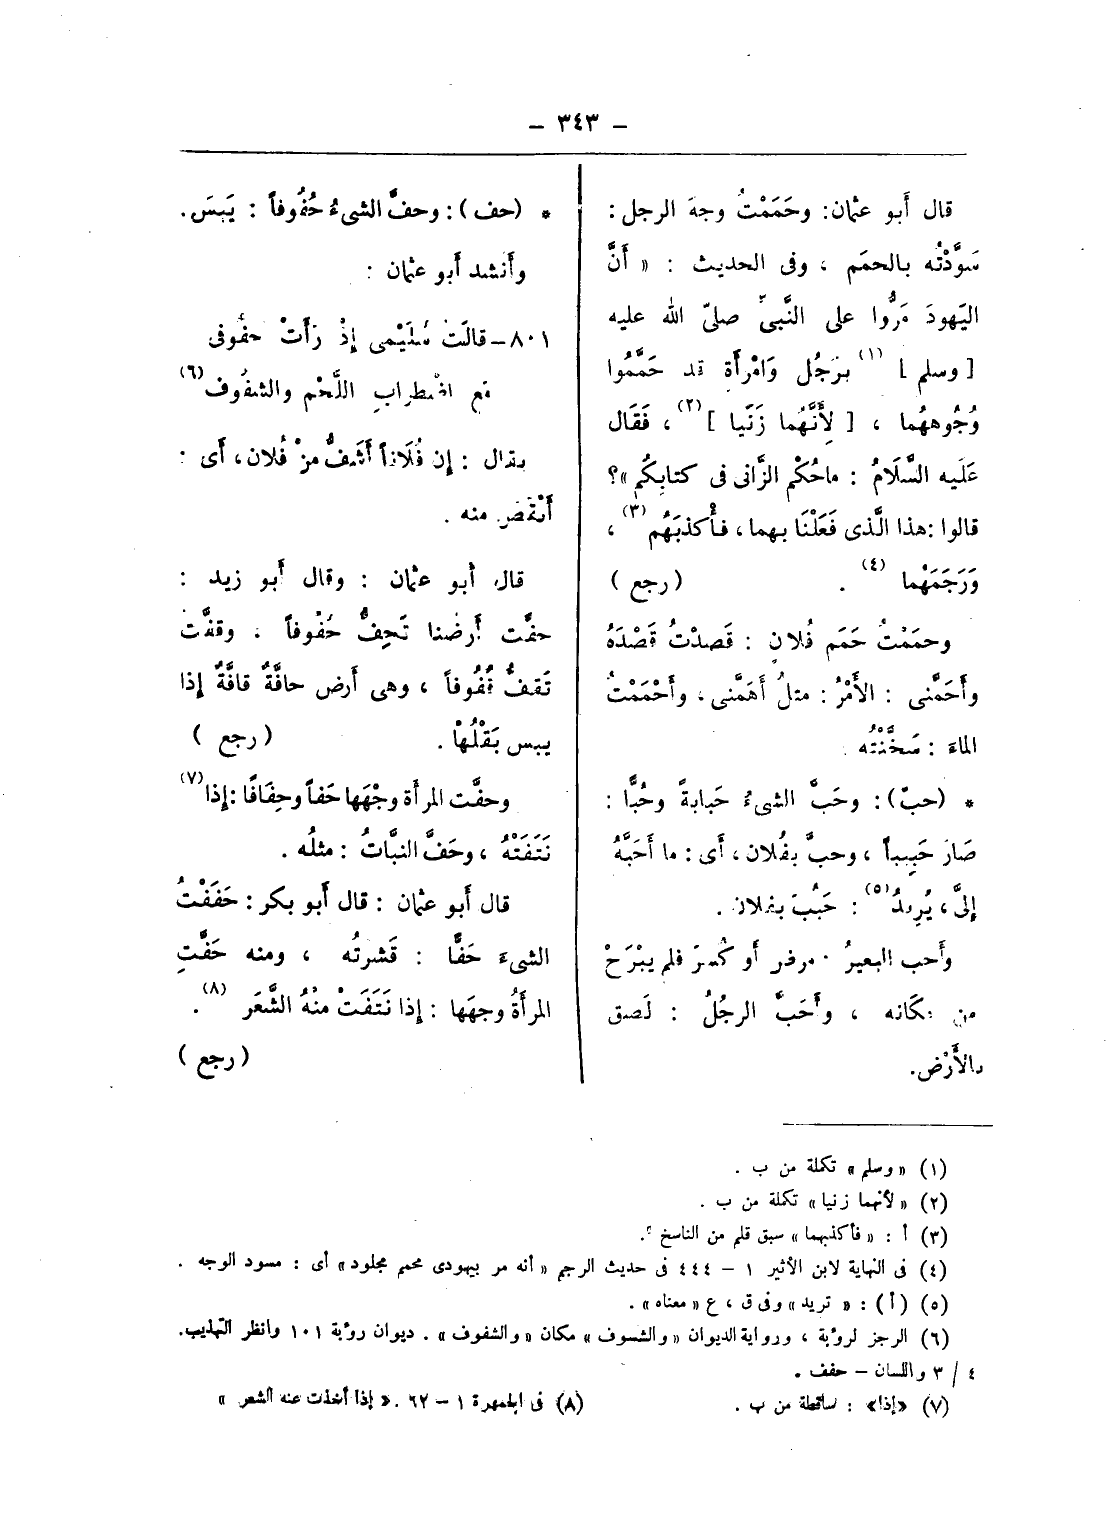 – ٣٤٣ –
قال أَبو عثمان: وحَمَمْتُ وجهَ الرجل :
سَوَّدْتُه بالحمَم ، وفى الحديث : « أَنَّ
اليَهودَ مَرُّوا على النَّبىِّ صلىّ الله عليه
[ وسلم ] (١) برَجُل وَامْرأَةٍ قد حَمَّمُوا
وُجُوهَهُما ، [ لِأَنَّهُما زَنَيا ] (٢) ، فَقَال
عَلَيه السَّلَامُ : ماحُكْم الزَّانى فى كتابِكُم »؟
قالوا :هذا الَّذى فَعَلْنَا بهما ، فأَكذبَهُم (٣) ،
وَرَجَمَهُما (٤) . ( رجع )
وحمَمْتُ حَمَم فُلانٍ : قَصدْتُ قَصْدَهُ
وأَحَمَّنى : الأَمْرُ : مثلُ أَهَمَّنى ، وأَحْمَمْتُ
الماءَ : سَخَّنْتُه .
* (حبّ) : وحَبَّ الشىءُ حَبابةً وحُبًّا :
صَارَ حَبِيباً ، وحبَّ بفُلان ، أَى : ما أَحَبَّهُ
إِلىَّ ، يُرِيدُ (٥) : حَبُبَ بفلان .
وأَحب البعيرُ : مرض أَو كُسِرَ فلم يبْرَحْ
من مكَانه ، وأَحَبَّ الرجُلُ : لَصِق
بالأَرْض.
* (حف) : وحفَّ الشىءُ حُفُوفاً : يَبِسَ .
وأَنشد أَبو عثمان :
٨٠١–قالَتْ سُلَيْمى إِذْ رَأَتْ حفُوفى
مَع اضْطِرابِ اللَّحْم والشفُوف (٦)
يقال : إِن فُلَاناً أَشَفُّ مِنْ فُلان ، أَى :
أَنْقَصُ منه .
قال أَبو عثمان : وقال أَبو زيد :
حفَّت أَرضنا تَحِفُّ حُفُوفاً ، وقفَّت
تَقفُّ قُفُوفاً ، وهى أَرض حافَّةٌ قافَّةٌ إِذا
يبس بَقْلُهاْ . ( رجع )
وحفَّت المرأَة وجْهَها حَفاً وحِفَافًا : إِذا (٧)
نَتَفَتْهُ ، وحَفَّ النبَّاتُ : مثلُه .
قال أَبو عثمان : قال أَبو بكر : حَفَفْتُ
الشىءَ حَفًّا : قَشرتُه ، ومنه حَفَّتِ
المرأَةُ وجهَها : إِذا نَتَفَتْ مِنْهُ الشَّعَر (٨) .
( رجع )
(١) « وسلم » تكملة من ب .
(٢) « لأنهما زنيا » تكملة من ب .
(٣) أ : « فأكذبهما » سبق قلم من الناسخ .
(٤) فى النهاية لابن الأثير ١ – ٤٤٤ فى حديث الرجم « أنه مر بيهودى محمم مجلود » أى : مسود الوجه .
(٥) (أ) : « تريد » وفى ق ، ع « معناه » .
(٦) الرجز لرؤبة ، ورواية الديوان « والشسوف » مكان « والشفوف » . ديوان رؤبة ١٠١ وانظر التهذيب.
٤ / ٣ واللسان – حفف .
(٧) «إذا» : ساقطة من ب . (٨) فى الجمهرة ١ – ٦٢ . « إذا أخذت عنه الشعر »